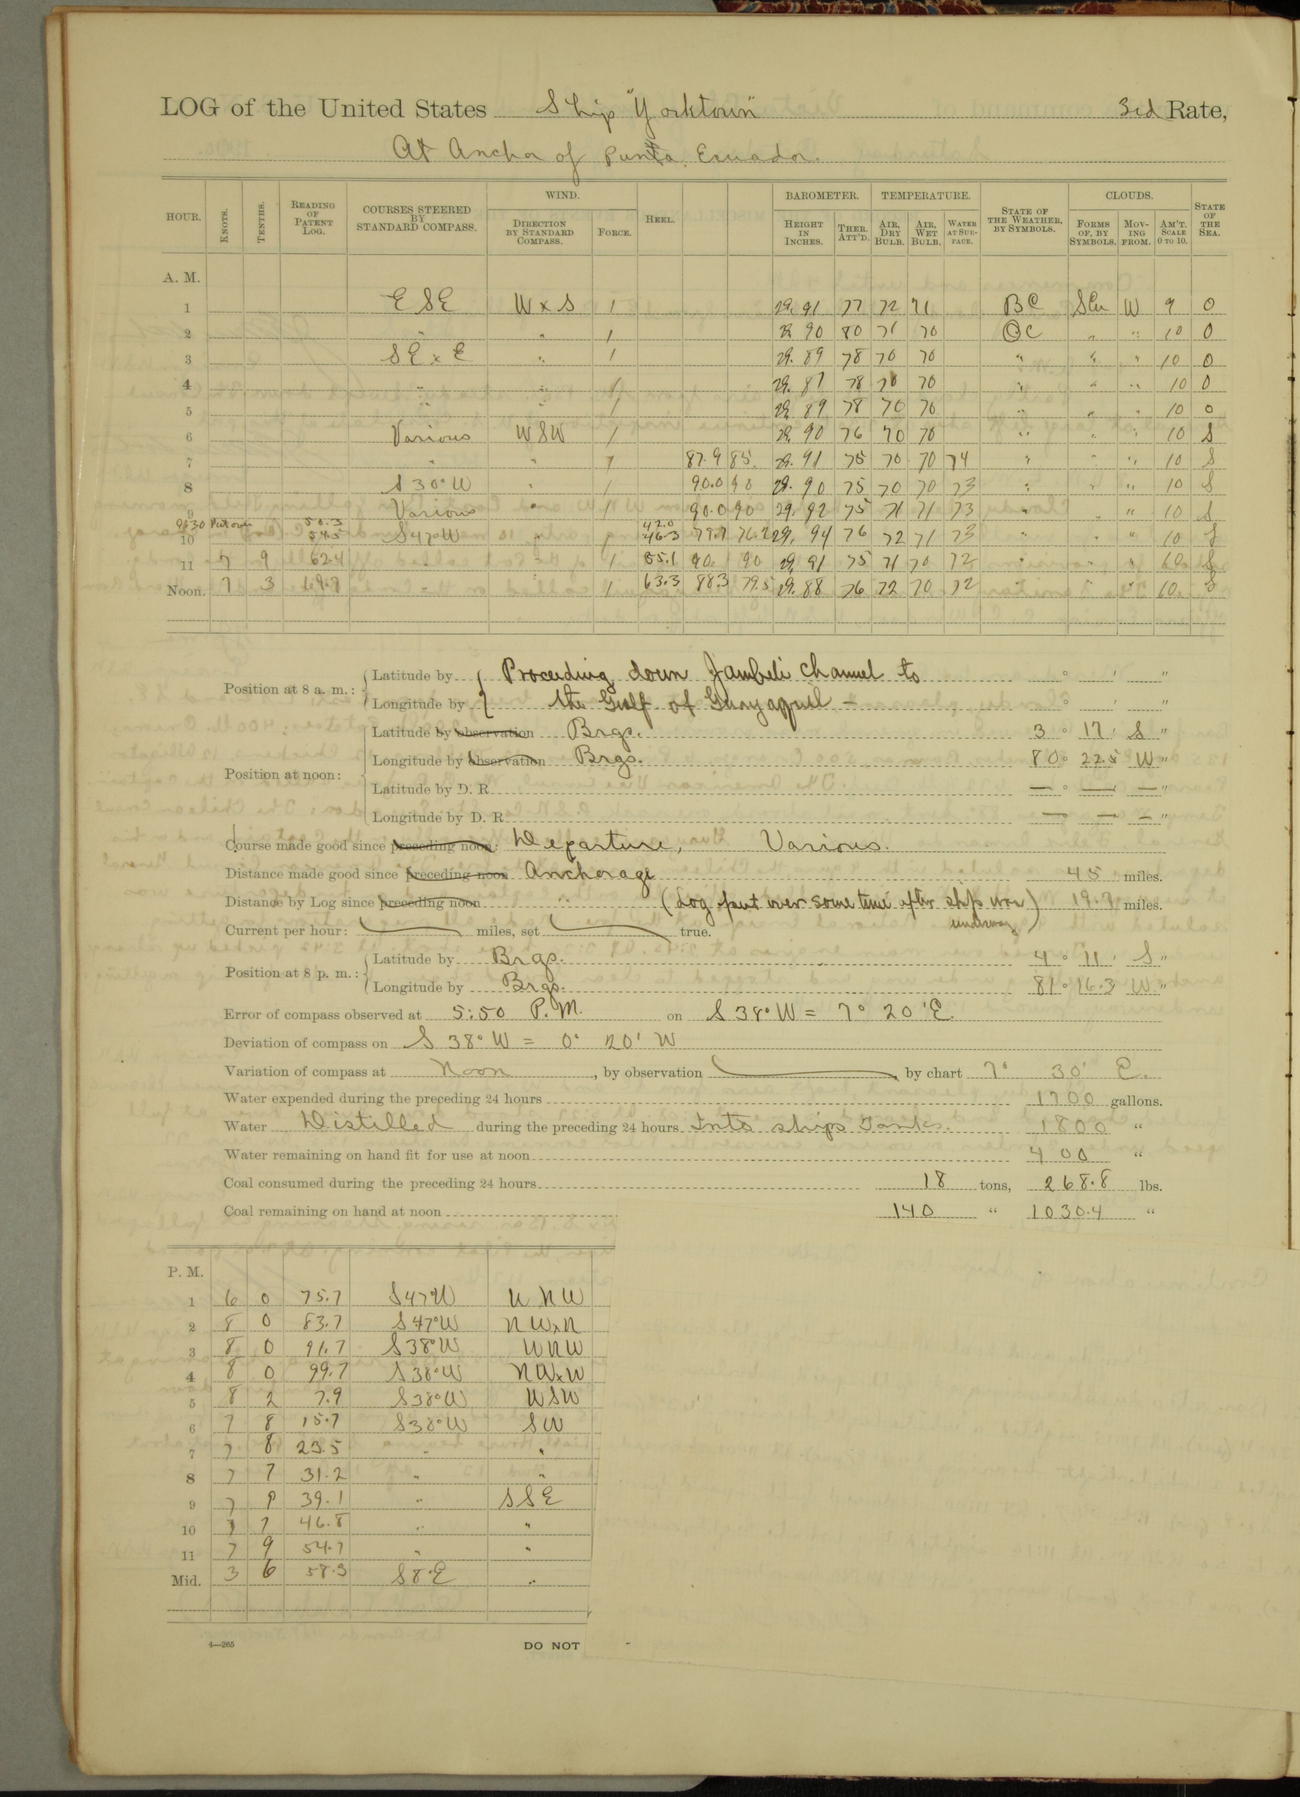 LOG of the United States Ship "Yorktown" 3rd Rate,
At Anchor of Punta Ecuador.
HOUR. KNOTS. TENTHS. READING OF PATENT LOG. COURSES STEERED BY STANDARD COMPASS. WIND. DIRECTION BY STANDARD COMPASS. FORCE. HEEL. BAROMETER. HEIGHT IN INCHES. THER. ATT'D. TEMPERATURE. AIR, DRY BULB. AIR, WET BULB. WATER AT SURFACE. STATE OF THE WEATHER, BY SYMBOLS. CLOUDS. FORMS OF, BY SYMBOLS. MOVING FROM. AM'T. SCALE 0 TO 10. STATE OF THE SEA.
A. M.
1 ESE W x S 1 29.91 77 72 71 BC SCu W 9 0
2 " " 1 29.90 80 71 70 OC " " 10 0
3 SE x E " 1 29.89 78 70 70 " " " 10 0
4 " " 1 29.87 78 70 70 " " " 10 0
5 " " 1 29.89 78 70 70 " " " 10 0
6 Various WSW 1 29.90 76 70 70 " " " 10 S
7 " " 1 87.9 85. 29.91 75 70 70 74 " " " 10 S
8 S 30° W " 1 90.0 90 29.90 75 70 70 73 " " " 10 S
9 Various " 1 90.0 90 29.92 75 71 71 73 " " " 10 S
9:30 Put over 50.3 42.0
10 54.5 S47°W " 1 46.3 79.7 76.2 29.94 76 72 71 73 " " " 10 S
11 7 9 62.4 " " 1 55.1 90. 90 29.91 75 71 70 72 " " " 10 S
Noon. 7 3 69.7 " " 1 63.3 88.3 79.5 29.88 76 72 70 72 " " " 10. S
Position at 8 a. m.: Latitude by Proceeding down Jambeli Channel to ° ' "
Longitude by the Gulf of Guayaquil - ° ' "
Position at noon: Latitude by observation Brgs. 3° 17' S "
Longitude by observation Brgs. 80° 22.5 W "
Latitude by D. R. — ° — ' — "
Longitude by D. R. — ° — ' — "
Course made good since preceding noon: Departure, Various.
Distance made good since preceding noon Anchorage 45 miles.
Distance by Log since preceding noon " (Log put over some time after ship was underway) 19.7 miles.
Current per hour: miles, set true.
Position at 8 p. m.: Latitude by Brgs. 4° 11' S "
Longitude by Brgs. 81° 16.3 W "
Error of compass observed at 5:50 P.M. on S 38° W = 7° 20' E
Deviation of compass on S 38° W = 0° 20' W
Variation of compass at Noon, by observation by chart 7° 30' E.
Water expended during the preceding 24 hours 1700 gallons.
Water Distilled during the preceding 24 hours Into ships Tanks. 1800 "
Water remaining on hand fit for use at noon 400 "
Coal consumed during the preceding 24 hours 18 tons, 268.8 lbs.
Coal remaining on hand at noon 140 " 1030.4 "
P. M.
1 6 0 75.7 S47°W WNW
2 8 0 83.7 S47°W NWxN
3 8 0 91.7 S38°W WNW
4 8 0 99.7 S38°W NWxW
5 8 2 7.9 S38°W WSW
6 7 8 15.7 S38°W SW
7 7 8 23.5 " "
8 7 7 31.2 " "
9 7 9 39.1 " SSE
10 7 7 46.8 " "
11 7 9 54.7 " "
Mid. 3 6 58.3 S8°E "
4—265
DO NOT